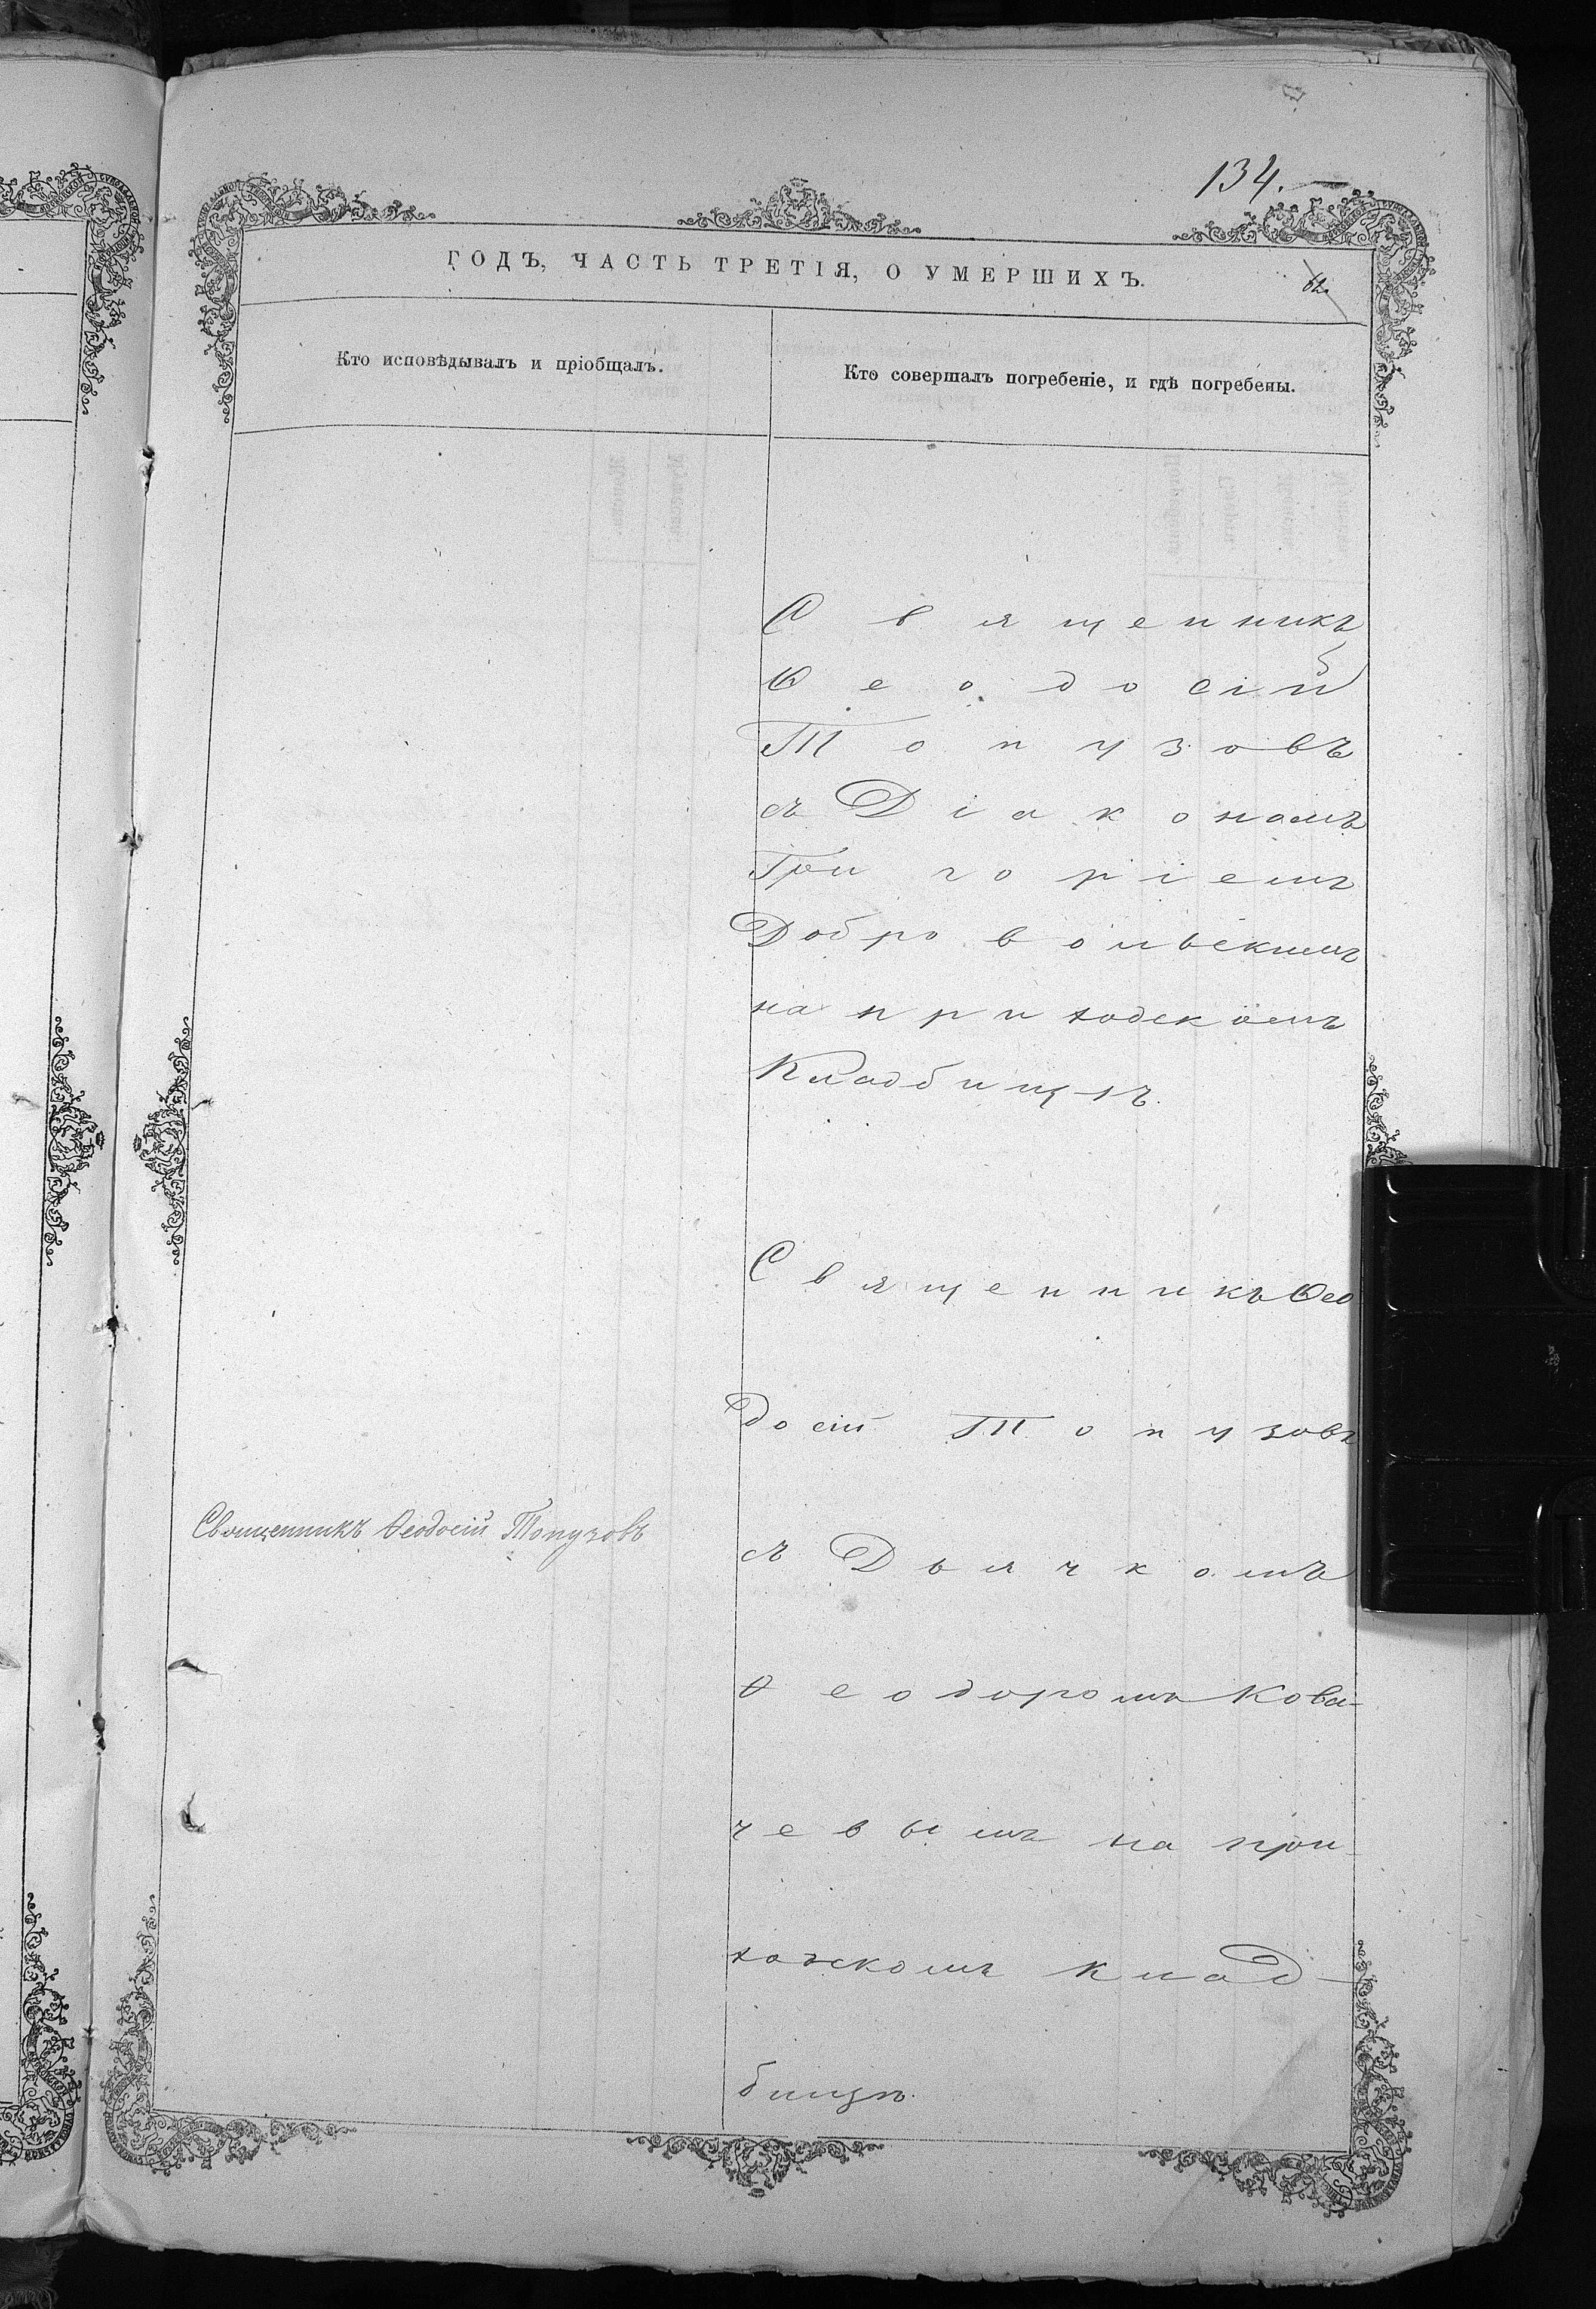 134.
ГОДЪ, ЧАСТЬ ТРЕТІЯ, О УМЕРШИХЪ.
62.
Кто исповѣдывалъ и пріобщалъ.
Кто совершалъ погребеніе, и гдѣ погребены.
Священникъ
Ѳеодосій
Топузовъ
съ Діакономъ
Григоріемъ
Добровольскимъ
на приходскомъ
Кладбищѣ.
Священникъ Ѳео
досій Топузовъ
съ Дьячкомъ
Ѳеодоромъ Кова-
чевымъ на при-
ходскомъ клад-
бищѣ.
Священникъ Ѳеодосій Топузовъ